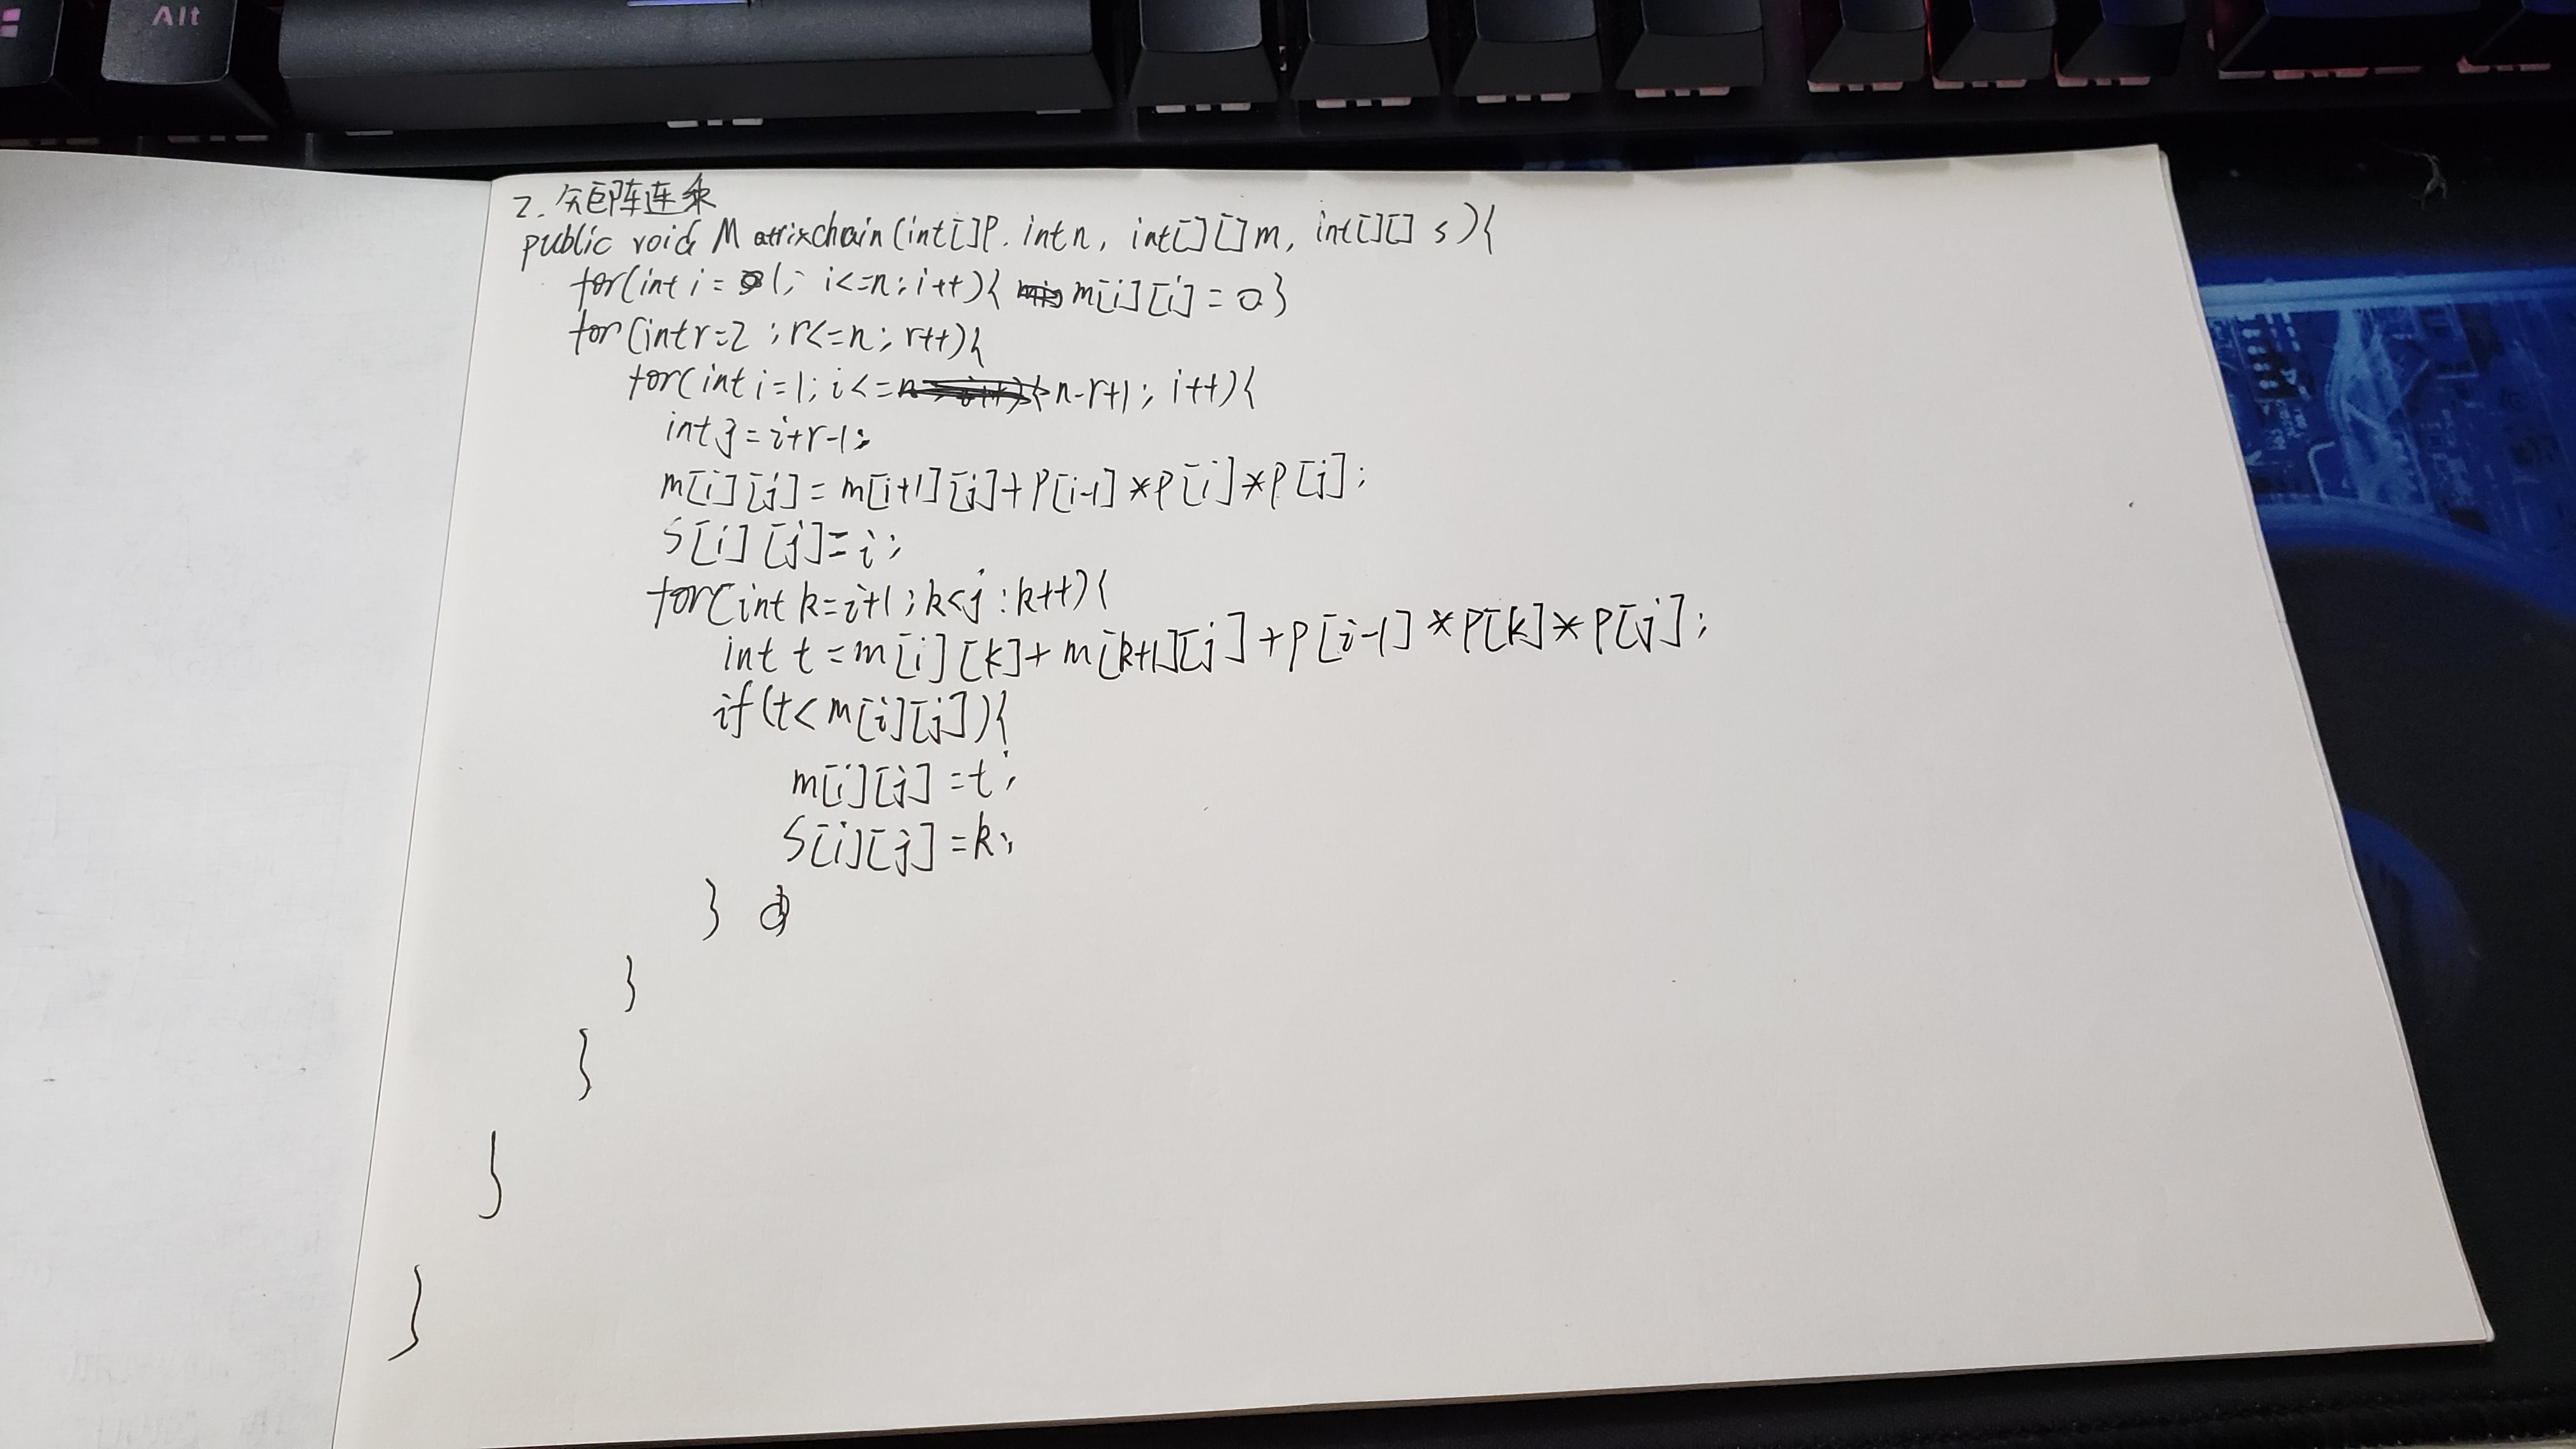 2.矩阵连乘
public void Matrixchain(int[]P. int n, int[][]m, int[][] s){
for(int i = 1; i<=n; i++){ m[i][i] = 0}
for(int r=2; r<=n; r++){
for(int i=1; i<=n-r+1; i++){
int j = i+r-1;
m[i][j] = m[i+1][j]+P[i-1]*P[i]*P[j];
S[i][j]=i;
for(int k=i+1; k<j; k++){
int t = m[i][k]+m[k+1][j]+P[i-1]*P[k]*P[j];
if(t<m[i][j]){
m[i][j]=t;
S[i][j]=k;
}
}
}
}
}
Alt